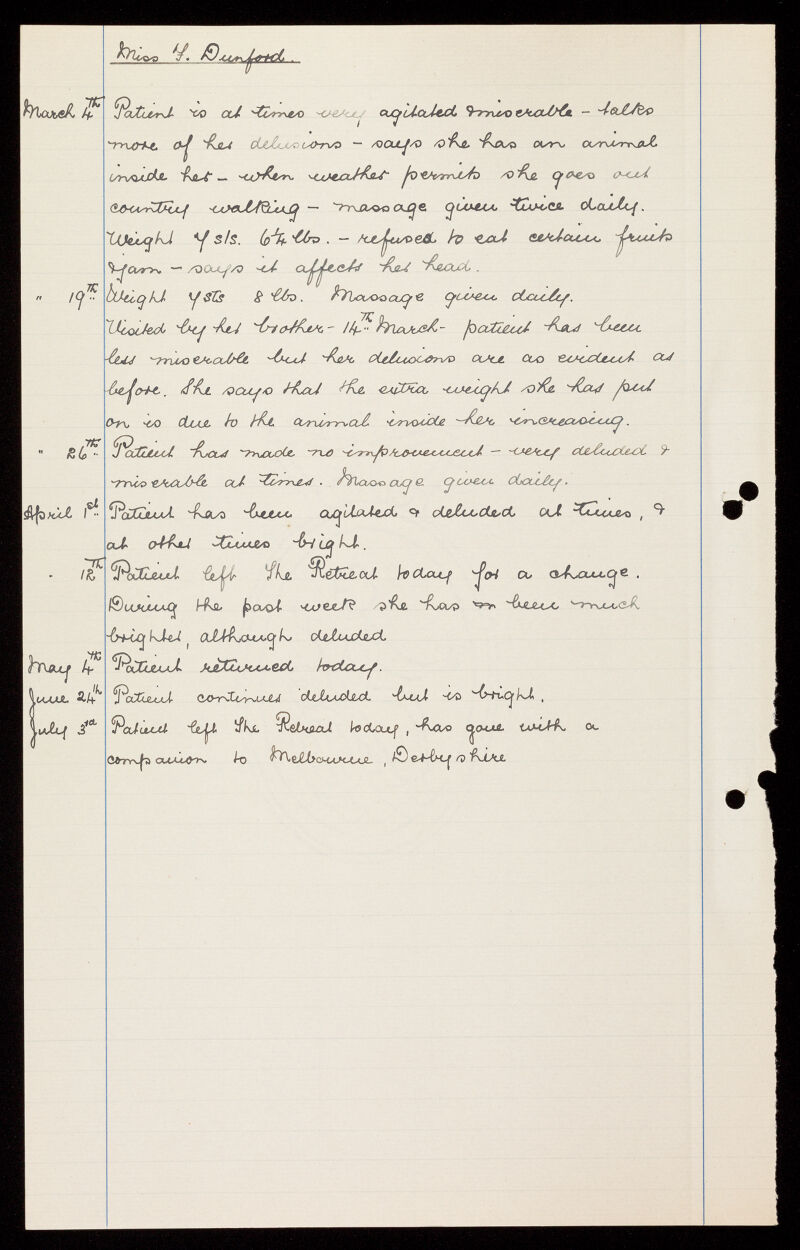 Miss F. Dunford.
March 4th Patient is at times very agitated & miserable – talks
more of her delusions – says she has an animal
inside her – when weather permits she goes out
country walking – massage given twice daily.
Weight 7 sts. 6¼ lbs. – refused to eat certain fruits
& jam – says it affects her head.
" 19th Weight 7 sts 8 lbs. Massage given daily.
Visited by her brother – 14th March – patient has been
less miserable but her delusions are as evident as
before. She says that the extra weight she has put
on is due to the animal inside her increasing.
" 26th Patient has made no improvement – very deluded &
miserable at times. Massage given daily.
April 1st Patient has been agitated & deluded at times, &
at other times bright.
" 12th Patient left The Retreat today for a change.
During the past week she has been much
brighter, although deluded
May 4th Patient returned today.
June 24th Patient continues deluded but is bright.
July 3rd Patient left The Retreat today, has gone with a
companion to Melbourne, Derbyshire